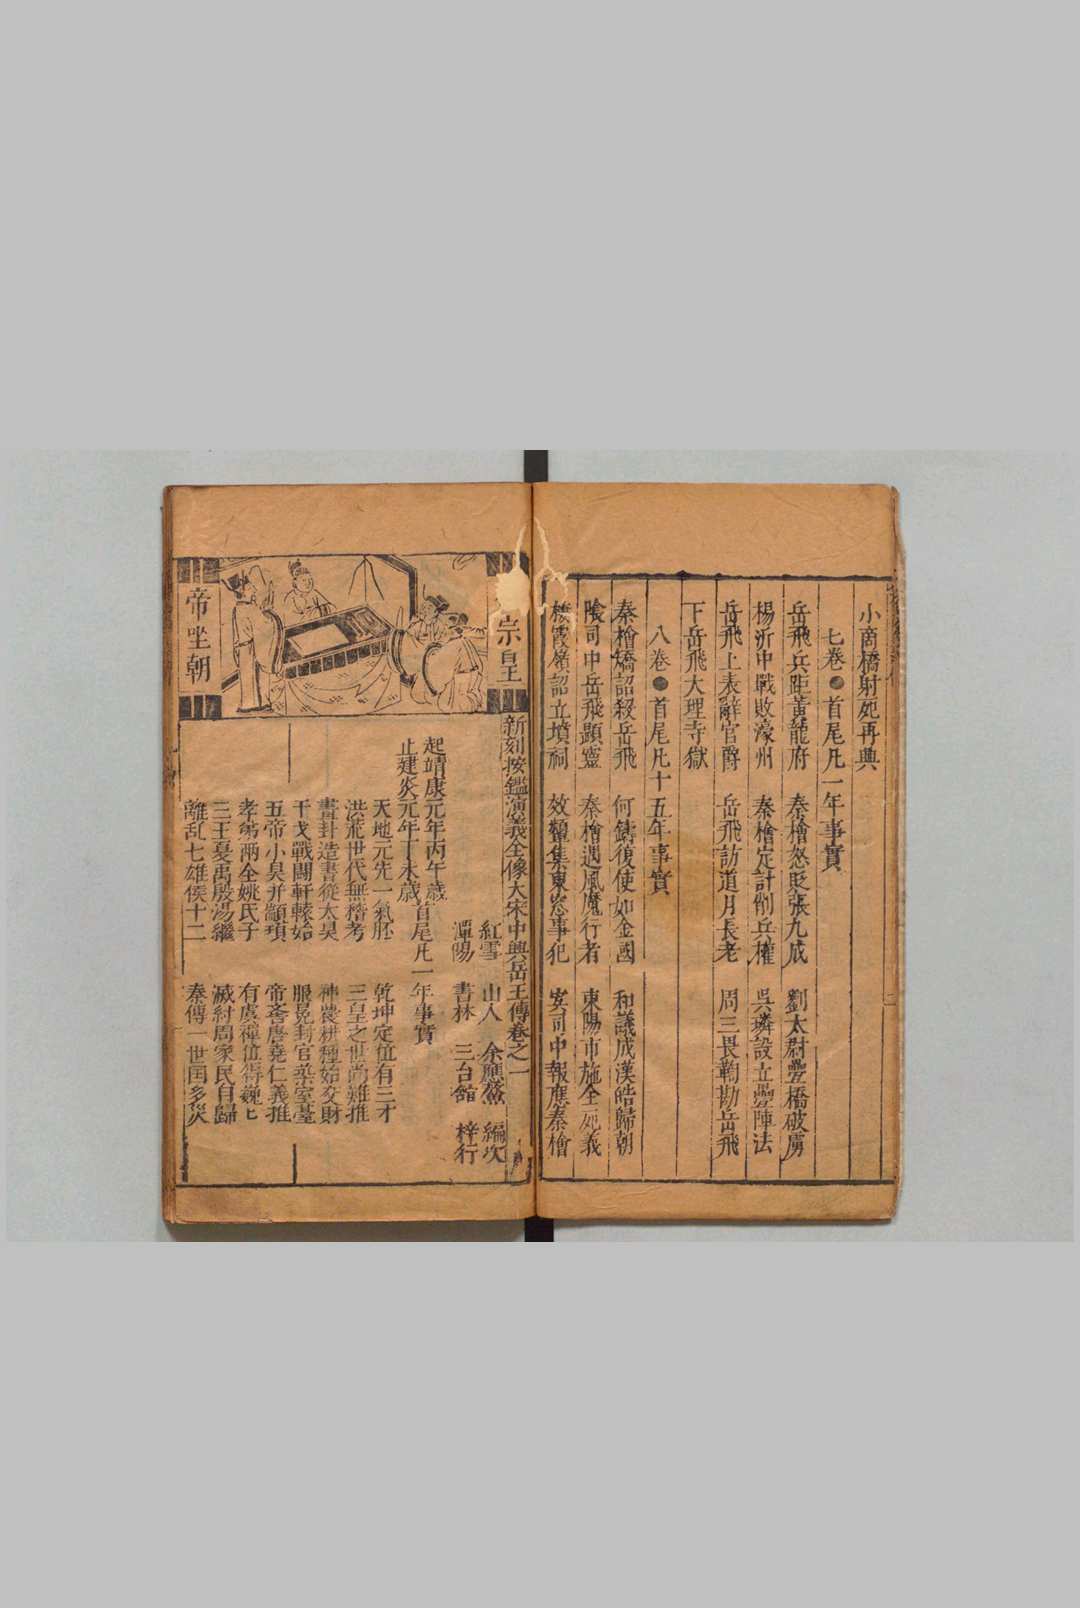 小商橋射死再興
七卷●首尾凡一年事實
岳飛兵距黃龍府 秦檜怒貶張九成 劉太尉疊橋破虜
楊沂中戰敗濠州 秦檜定計削兵權 吳璘設立疊陣法
岳飛上表辭官爵 岳飛訪道月長老 周三畏鞫勘岳飛
下岳飛大理寺獄
八卷●首尾凡十五年事實
秦檜矯詔殺岳飛 何鑄復使如金國 和議成漢皓歸朝
陰司中岳飛顯靈 秦檜遇風魔行者 東陽市施全死義
棲霞嶺詔立墳祠 效顰集東窓事犯 冥司中報應秦檜
宗皇
帝坐朝
新刻按鑑演義全像大宋中興岳王傳卷之一
紅雪 山人 余應鰲 編次
潭陽 書林 三台舘 梓行
起靖康元年丙午歲
止建炎元年丁未歲
首尾凡一年事實
天地元先一氣胚 乾坤定位有三才
洪荒世代無稽考 三皇之世尚難推
畫卦造書從太昊 神農耕種始交財
干戈戰鬪軒轅始 服冕封官築室臺
五帝小昊并顓頊 帝嚳唐堯仁義推
孝弟兩全姚氏子 有虞禪位得巍巍
三王夏禹殷湯繼 滅紂周家民自歸
離乱七雄侯十二 秦傳二世国多災